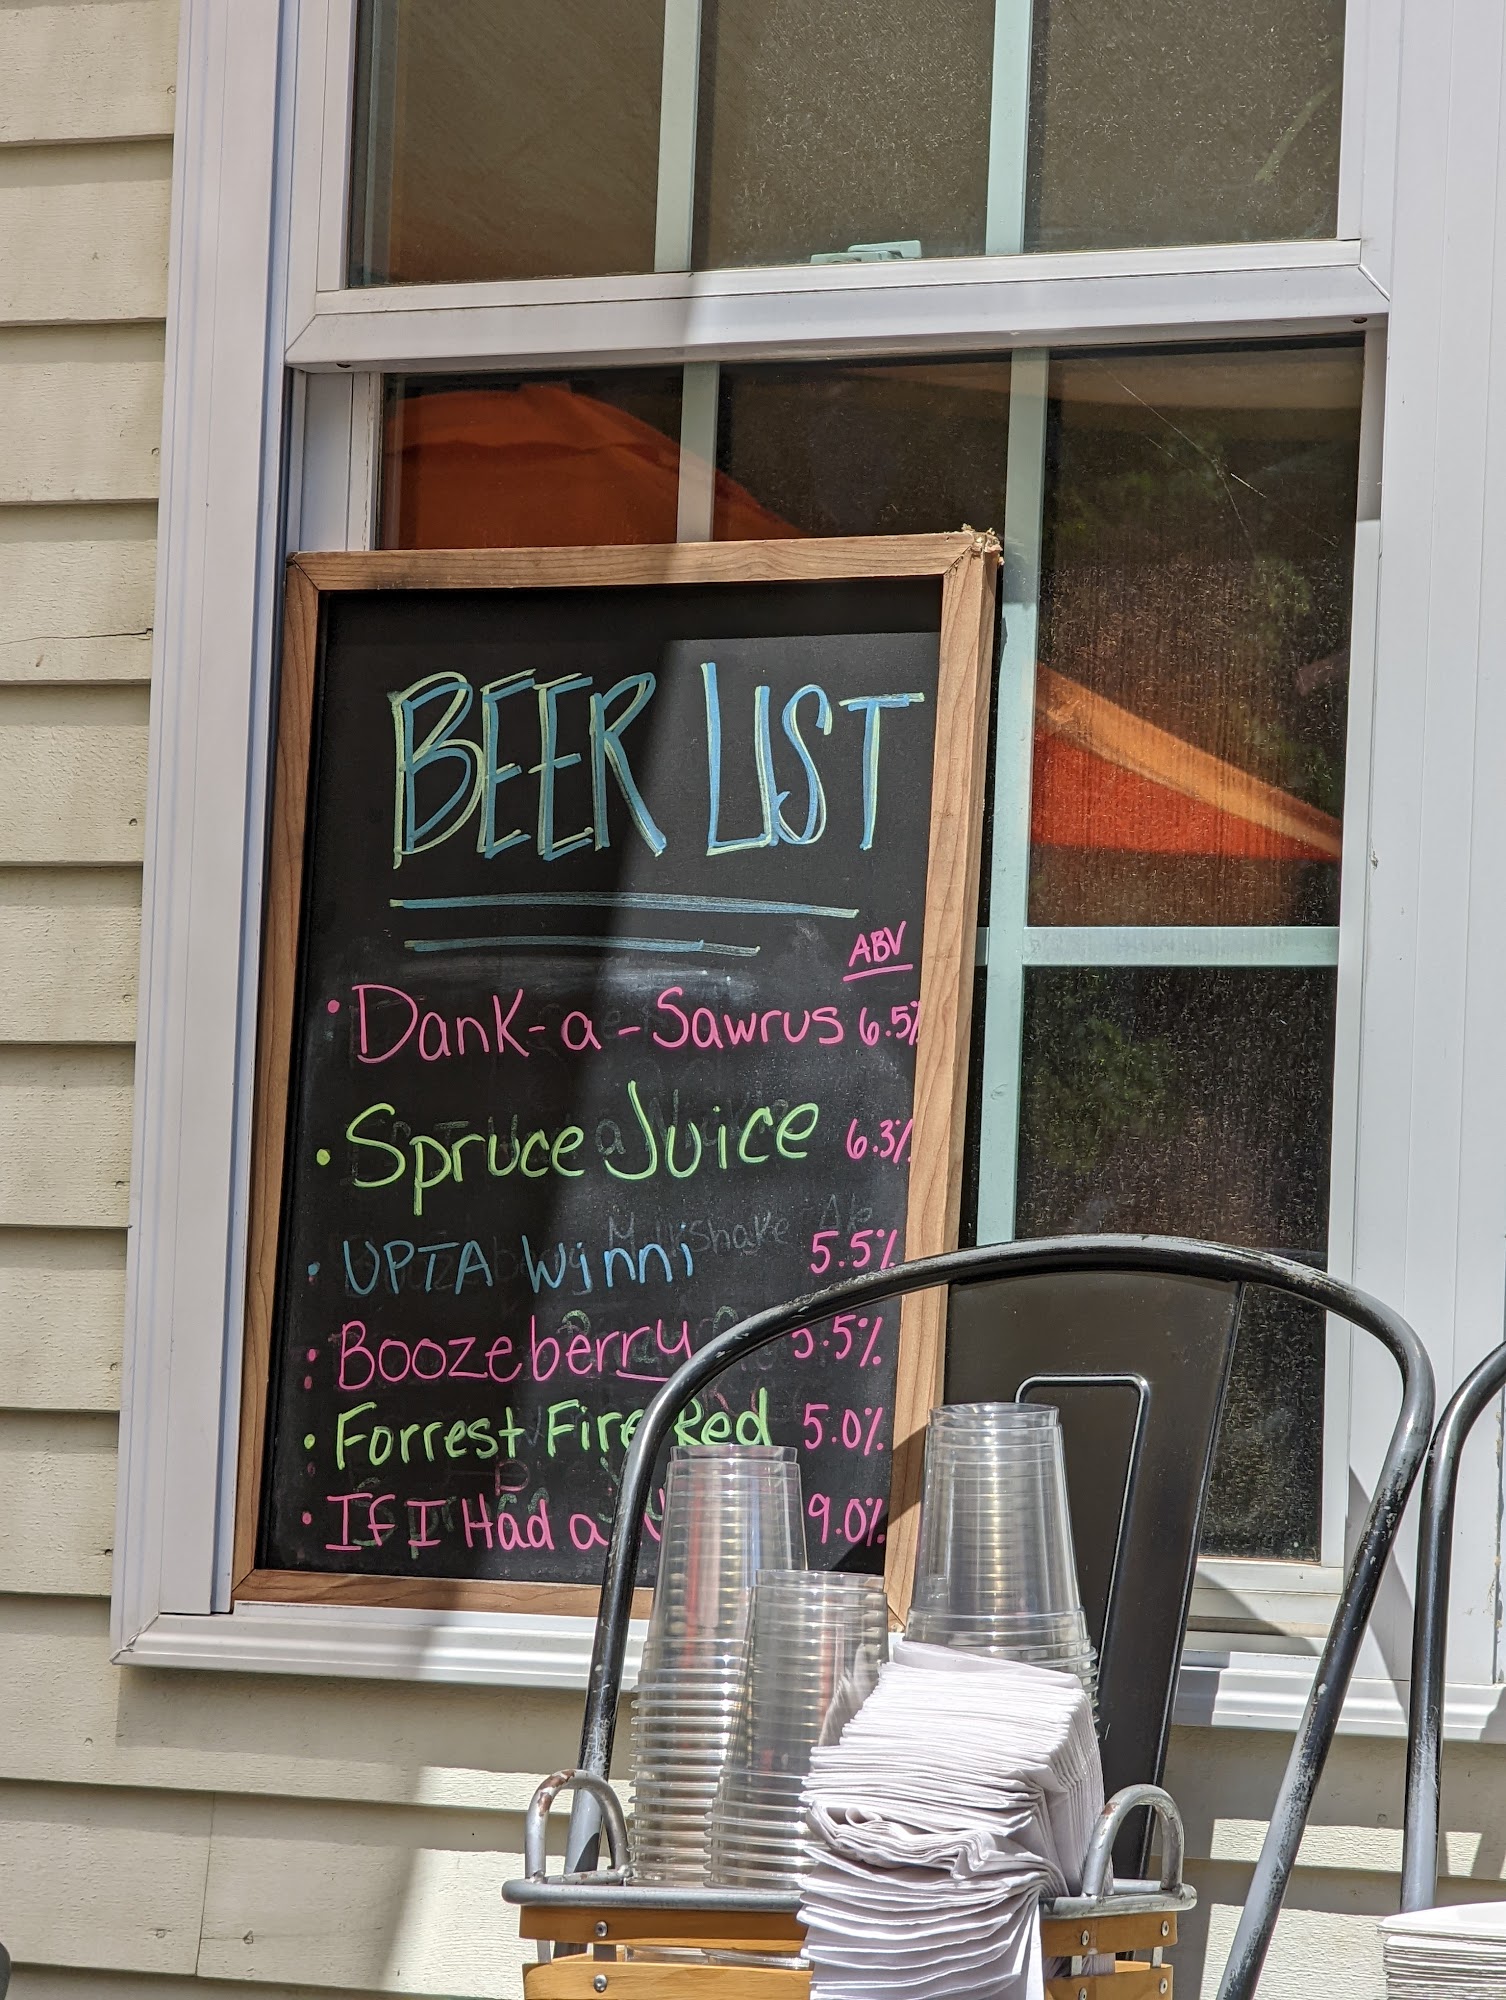 BEER LIST
ABV
• Dank-a-Sawrus 6.5%
• Spruce Juice 6.3%
• UPTA Winni 5.5%
• Boozeberry 5.5%
• Forrest Fire Red 5.0%
• If I Had a 9.0%
Milkshake Ale